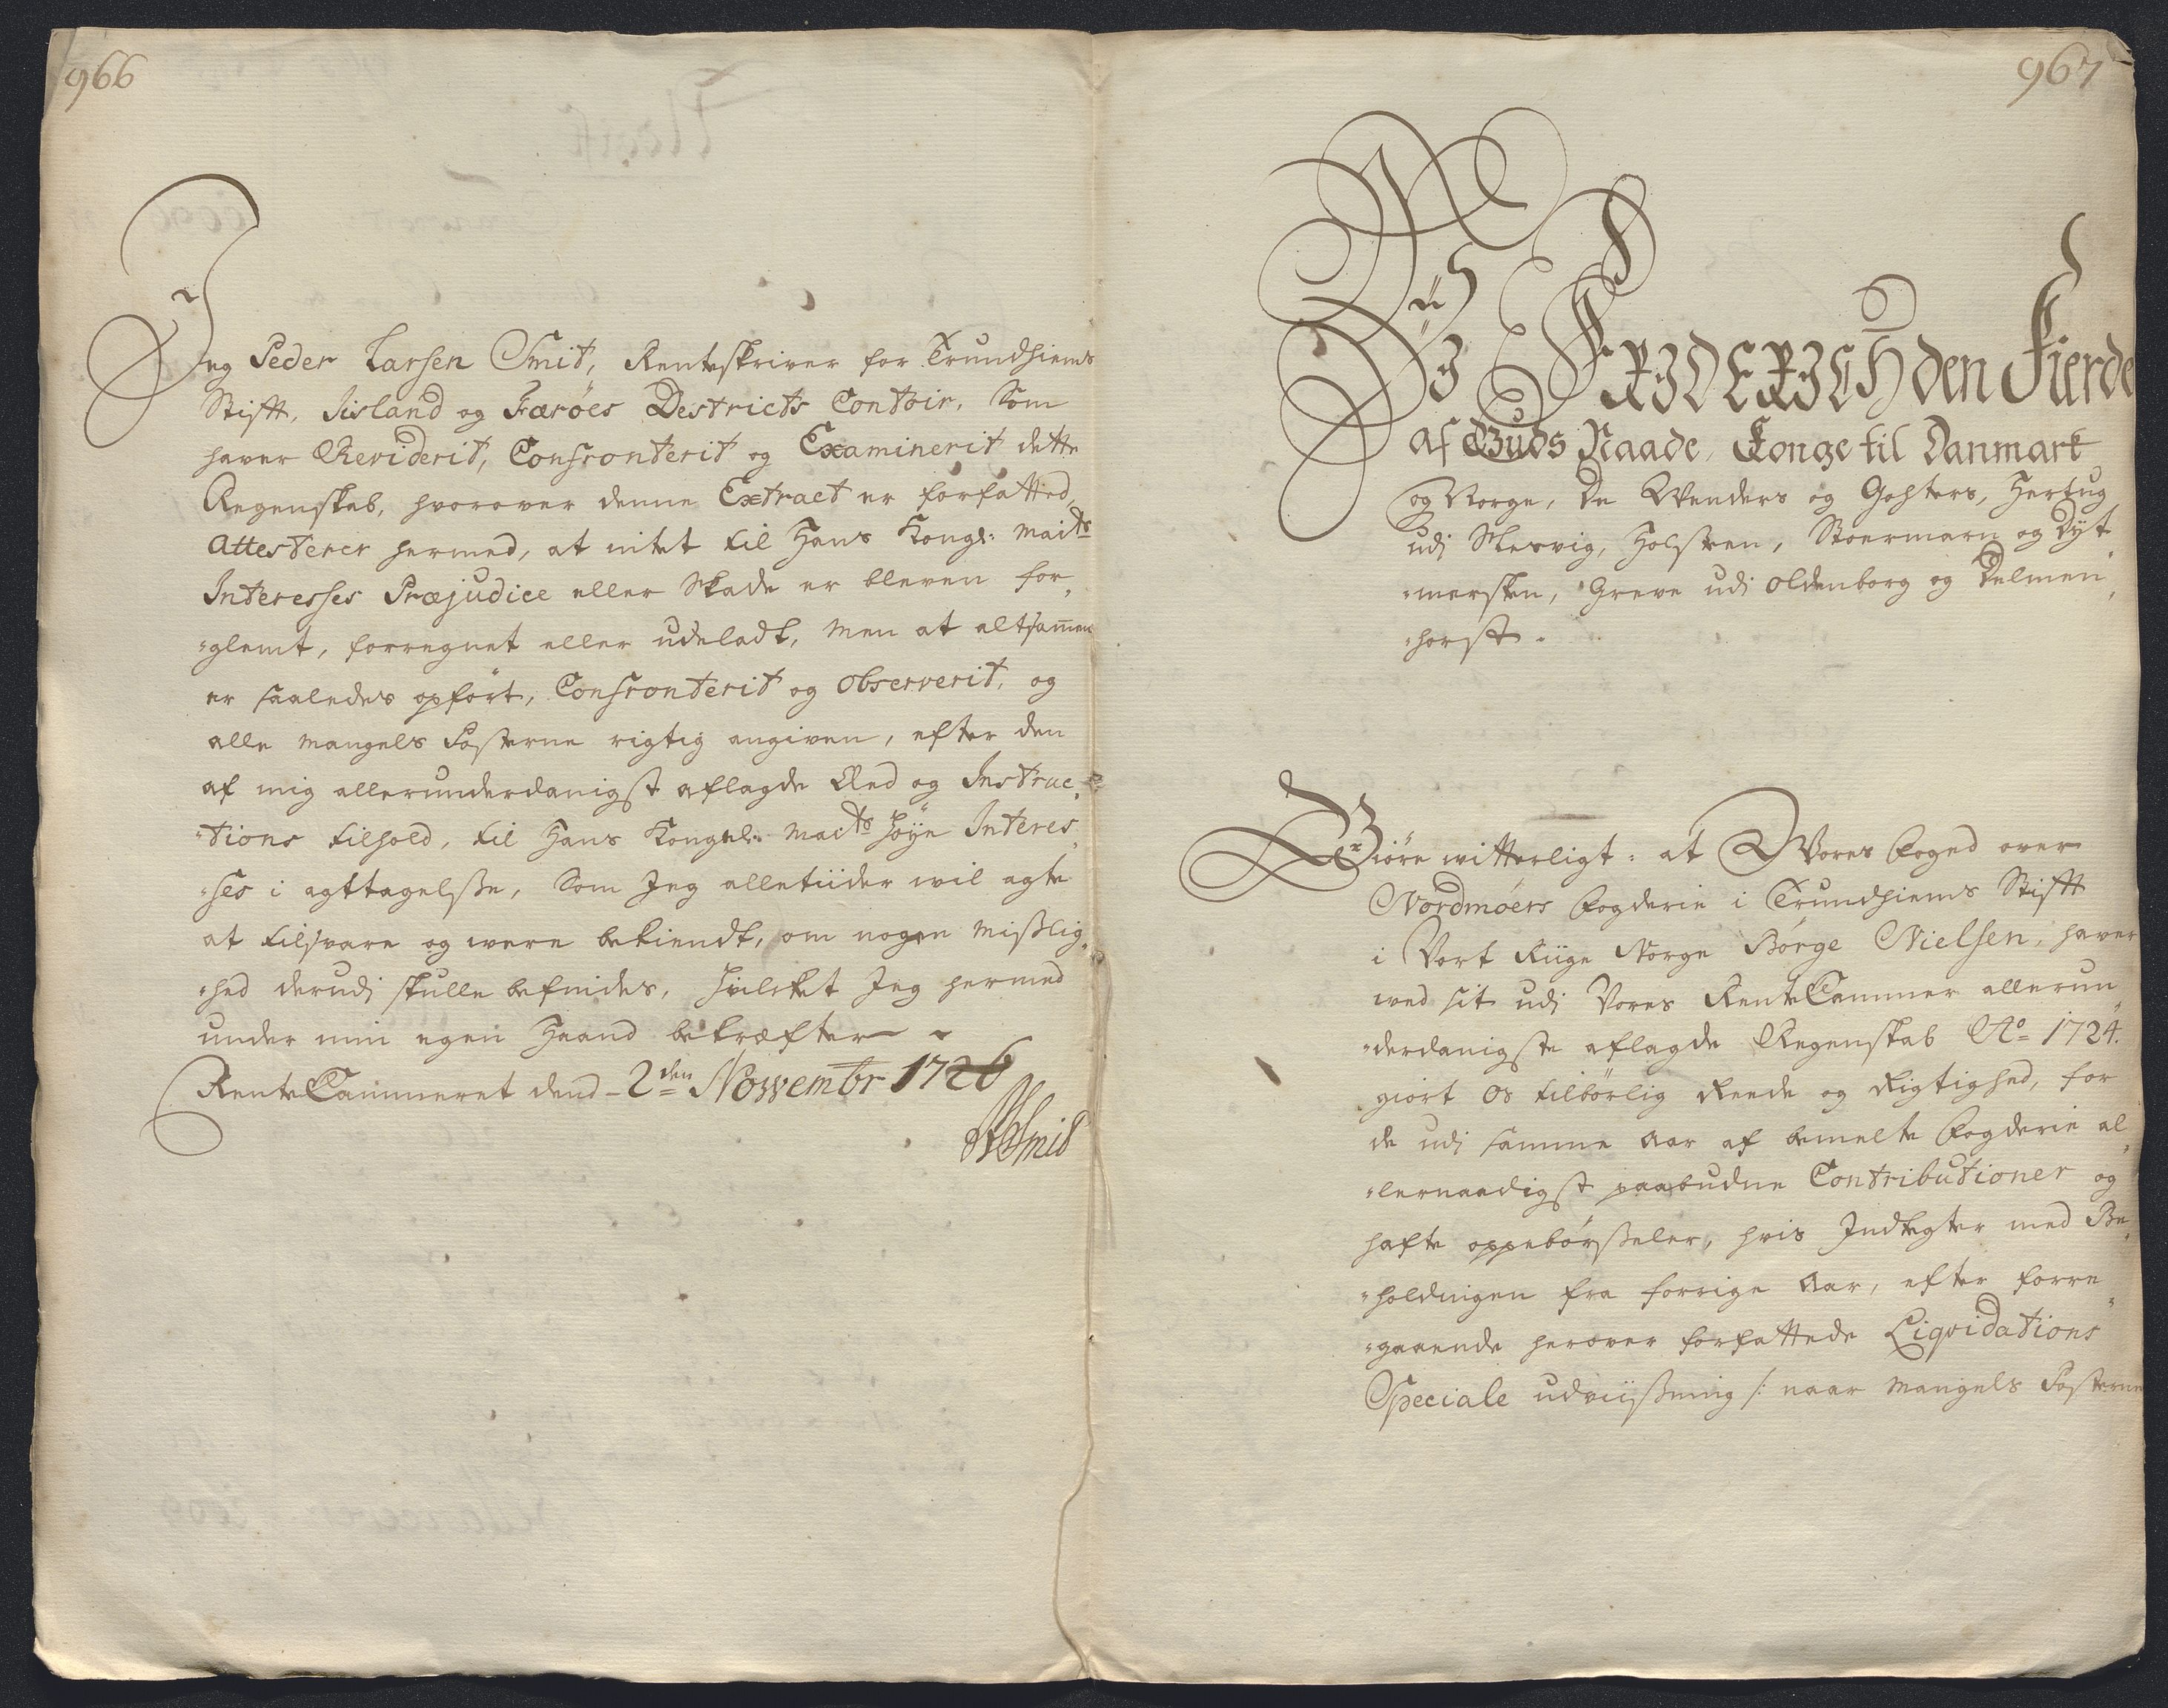 966
Jeg Peder Larsen Smit, Renteskriver for Trundhiems
Stift, Iisland og Færöes Destricts Contoir, Som
haver Reviderit, Confronterit og Examinerit dette
Regenskab, hvorover denne Extract er forfatted,
Attesterer hermed, at intet til Hans Kongl: Maits
Interesses Præjudice eller Skade er bleven for¸
¸glemt, forregnet eller udeladt, men at altsamen
er saaledes opfört, Confronterit og observerit, og
alle Mangels Posterne rigtig angiven, efter den
af mig allerunderdanigst aflagde Eed og Instruc¸
¸tions tilhold, til Hans Kongel: Maits Höye Interes¸
¸ses i agttagelsse, Som Jeg alletiider wil agte
at tilsvare og were bekiendt, om nogen Misslig¸
¸hed derudj skulle befindes, hvilcket Jeg hermed
under min egen Haand bekræfter
RenteCammeret dend 2den Novembr 1726
PLSmid
967
Wij FRIDERICH den Fierde
af Guds Naade, Konge til Danmark
og Norge, De Wenders og Gohters, Hertug
udj Slesvig, Holsteen, Stoermarn og Dyt¸
¸mersken, Greve udi Oldenborg og Delmen¸
¸horst.
Giöre witterligt: at Wores Foged over
Nordmöers Fogderie i Trundhiems Stift
i Vort Riige Norge Börge Nielsen, haver
wed sit udj Vores RenteCammer allerun¸
¸derdanigste aflagde Regenskab Ao 1724.
giort os tilbörlig Reede og Rigtighed, for
de udj samme Aar af bemelte Fogderie al¸
¸lernaadigst paabudne Contributioner og
hafte oppebörsseler, hvis Indtegter med Be¸
¸holdningen fra forrige Aar, efter forre¸
¸gaaende herover forfattede Liqvidations
Speciale udviissning /: naar Mangels Posterne